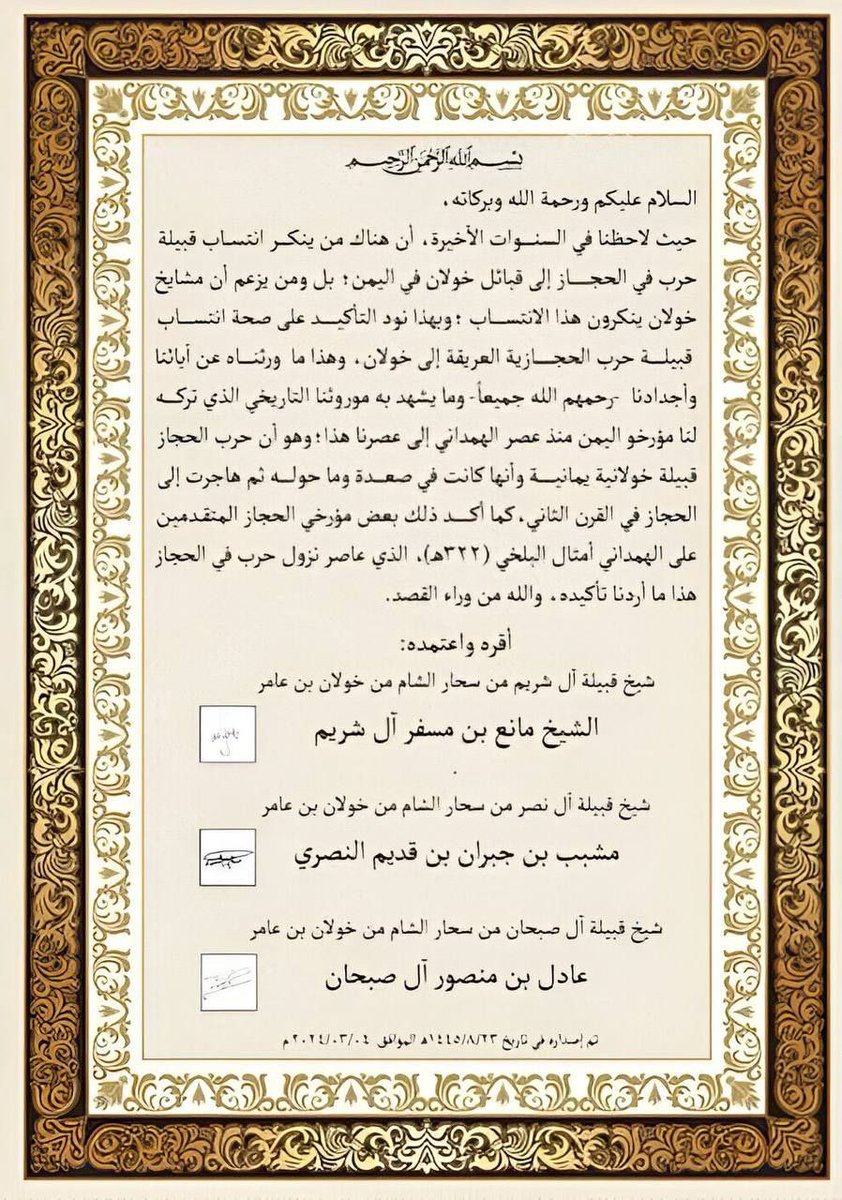 بسم الله الرحمن الرحيم
السلام عليكم ورحمة الله وبركاته،
حيث لاحظنا في السنوات الأخيرة، أن هناك من ينكر انتساب قبيلة
حرب في الحجاز إلى قبائل خولان في اليمن؛ بل ومن يزعم أن مشايخ
خولان ينكرون هذا الانتساب ؛وبهذا نود التأكيد على صحة انتساب
قبيلة حرب الحجازية العريقة إلى خولان، وهذا ما ورثناه عن آبائنا
وأجدادنا -رحمهم الله جميعاً- وما يشهد به موروثنا التاريخي الذي تركه
لنا مؤرخو اليمن منذ عصر الهمداني إلى عصرنا هذا؛ وهو أن حرب الحجاز
قبيلة خولانية يمانية وأنها كانت في صعدة وما حوله ثم هاجرت إلى
الحجاز في القرن الثاني، كما أكد ذلك بعض مؤرخي الحجاز المتقدمين
على الهمداني أمثال البلخي (٣٢٢هـ)، الذي عاصر نزول حرب في الحجاز
هذا ما أردنا تأكيده، والله من وراء القصد.
أقره واعتمده:
شيخ قبيلة آل شريم من سحار الشام من خولان بن عامر
الشيخ مانع بن مسفر آل شريم
شيخ قبيلة آل نصر من سحار الشام من خولان بن عامر
مشبب بن جبران بن قديم النصري
شيخ قبيلة آل صبحان من سحار الشام من خولان بن عامر
عادل بن منصور آل صبحان
تم إصداره في تاريخ ١٤٤٥/٨/٢٣هـ الموافق ٢٠٢٤/٠٣/٠٤م